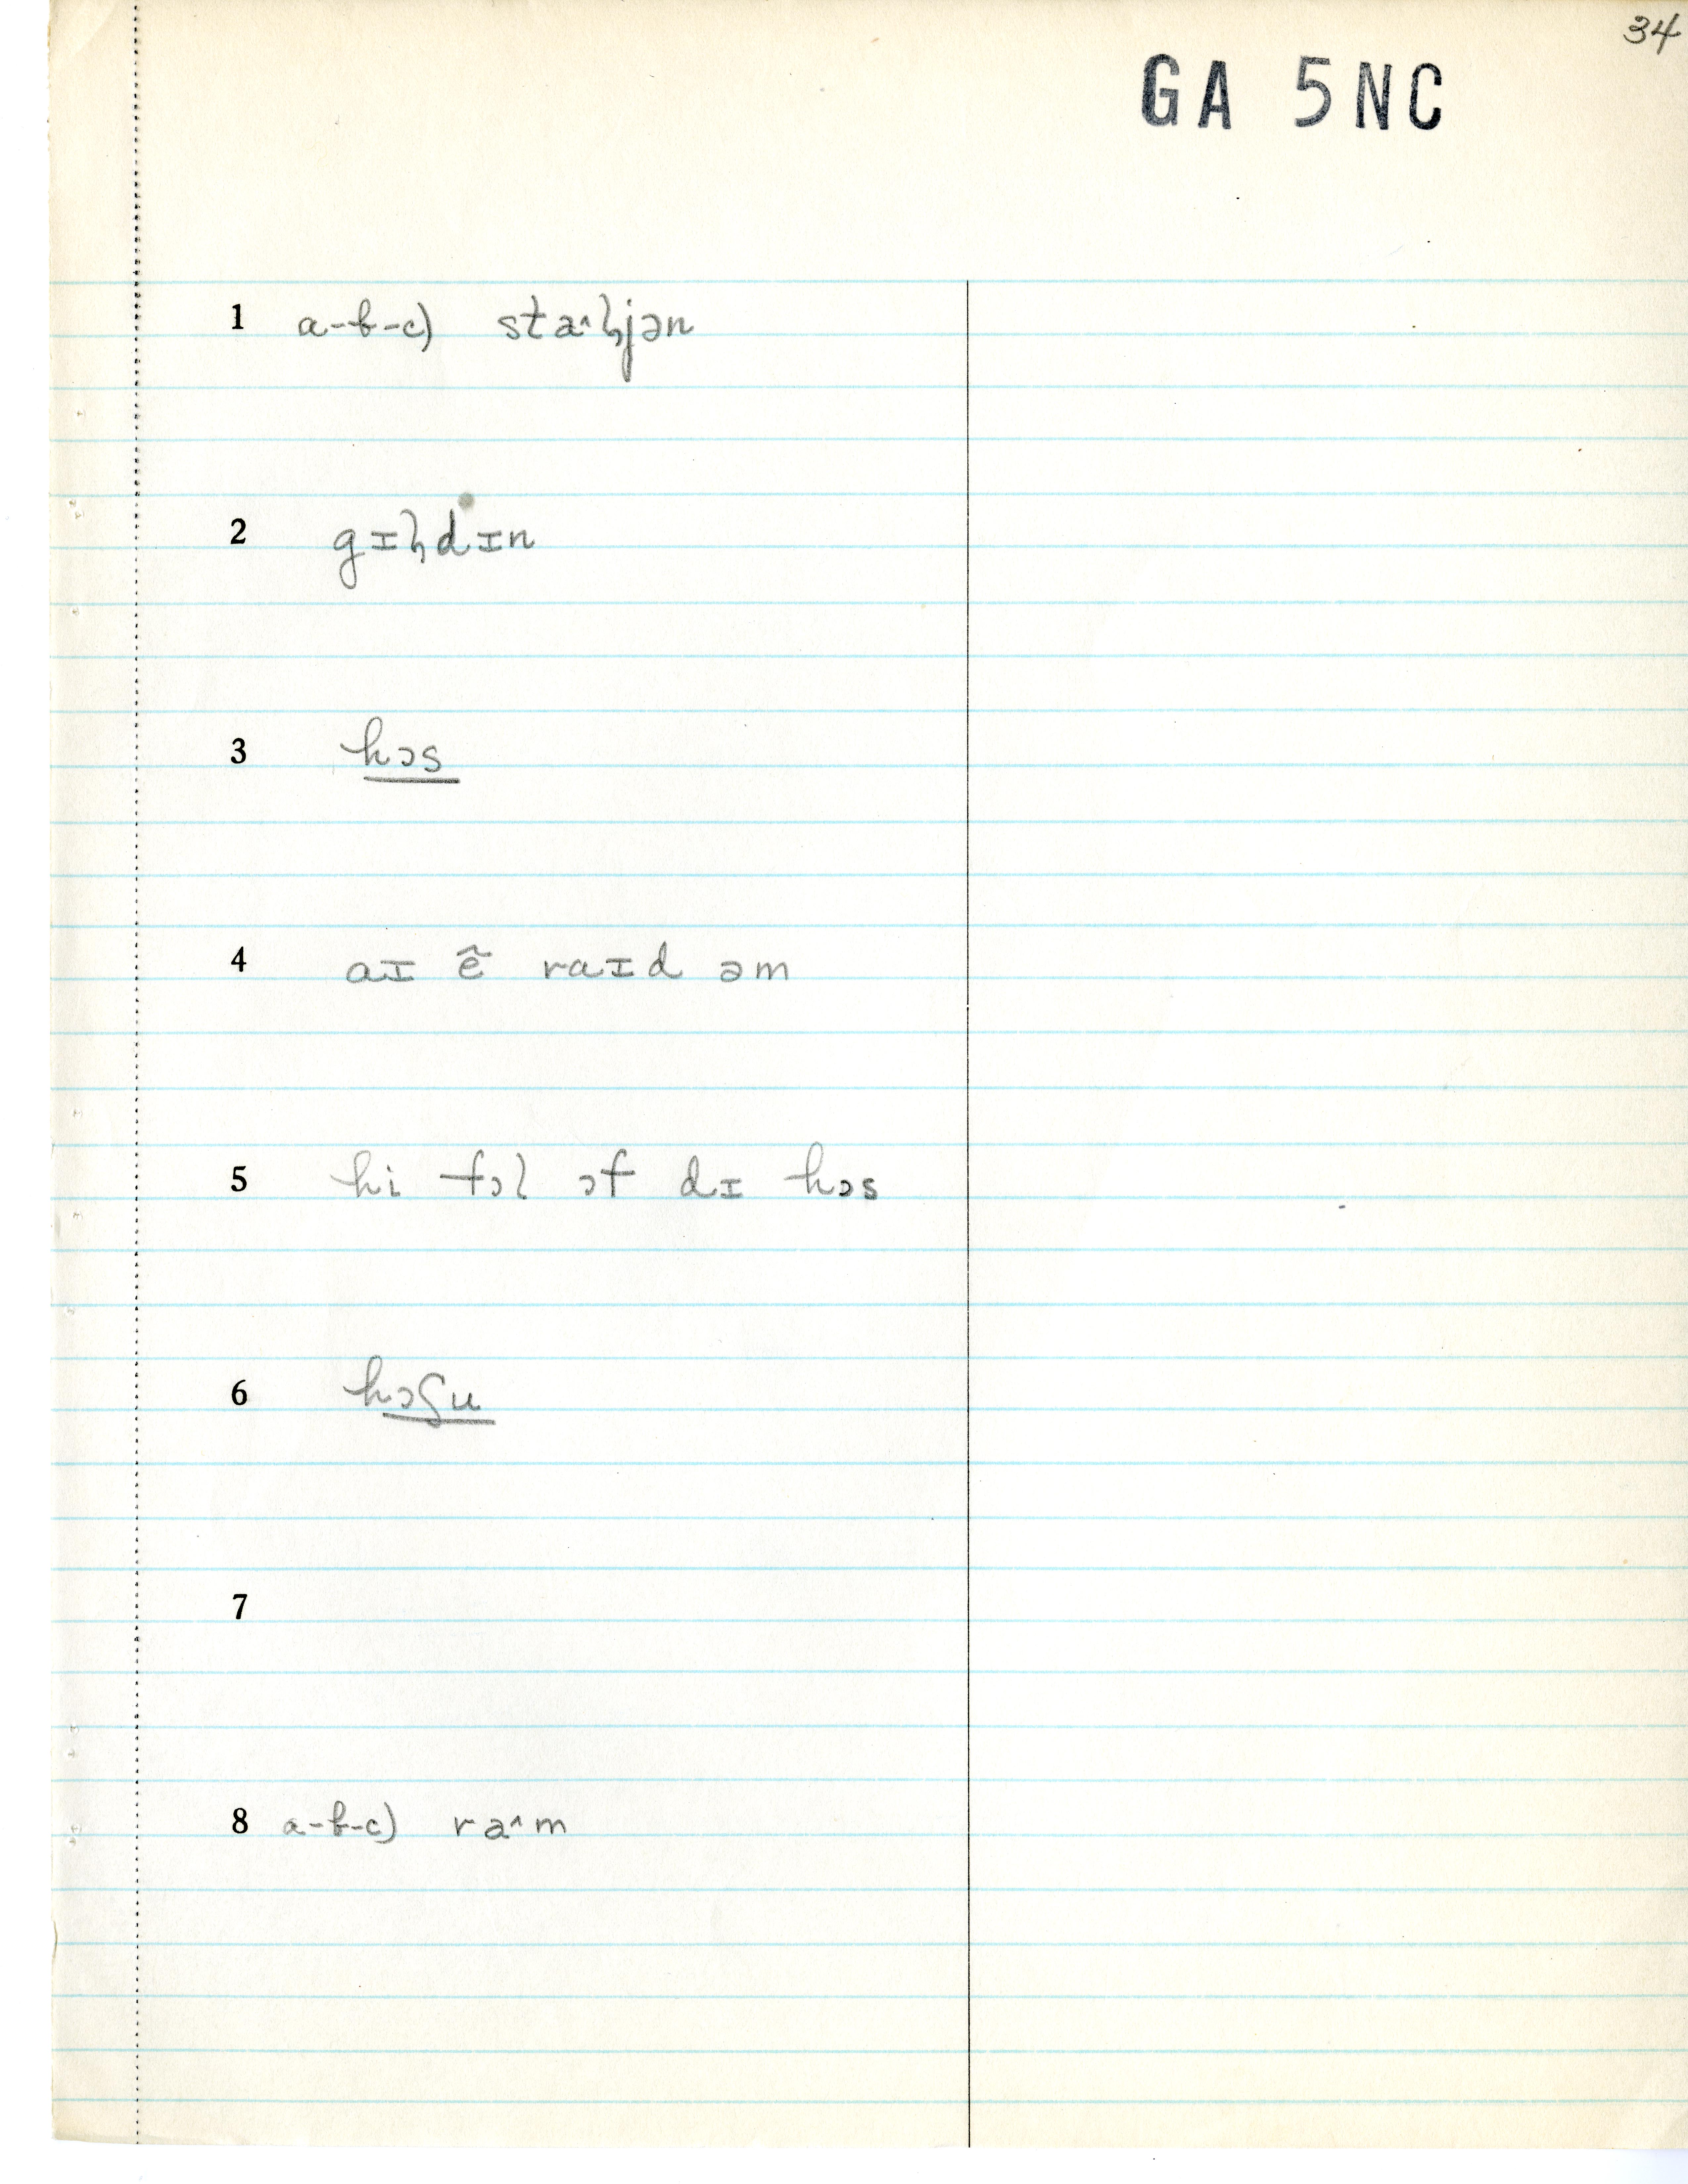 34
GA 5NC
1 a-b-c) staˆɦjən
2 gɪɦdɪn
3 hɔs
4 aɪ ẽ raɪd əm
5 hi fɔl ɔf dɪ hɔs
6 hɔʃu
7
8 a-b-c) raˆm